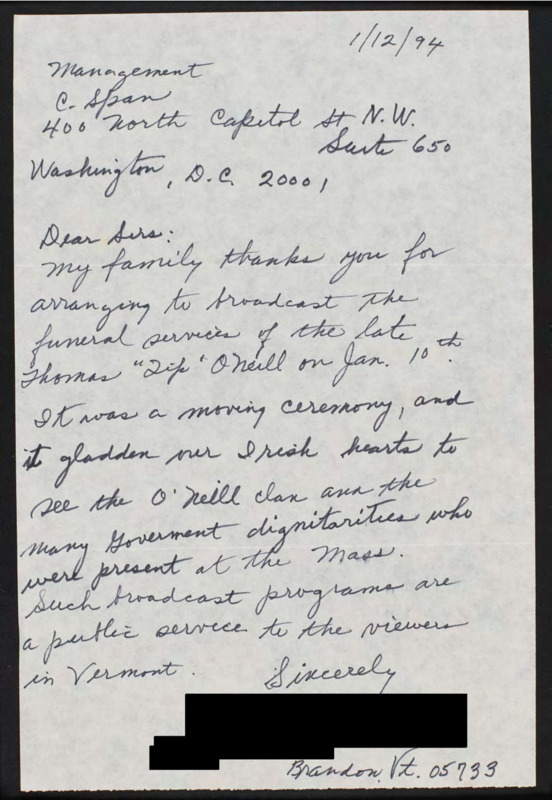 1/12/94
Management
C. Span
400 North Capitol St N.W.
Suite 650
Washington, D.C. 20001
Dear Sirs:
My family thanks you for
arranging to broadcast the
funeral services of the late
Thomas "Tip" O'Neill on Jan. 10th.
It was a moving ceremony, and
it gladden our Irish hearts to
see the O'Neill clan and the
many Goverment dignitarities who
were present at the Mass.
Such broadcast programs are
a public service to the viewers
in Vermont.
Sincerely
Brandon, Vt. 05733